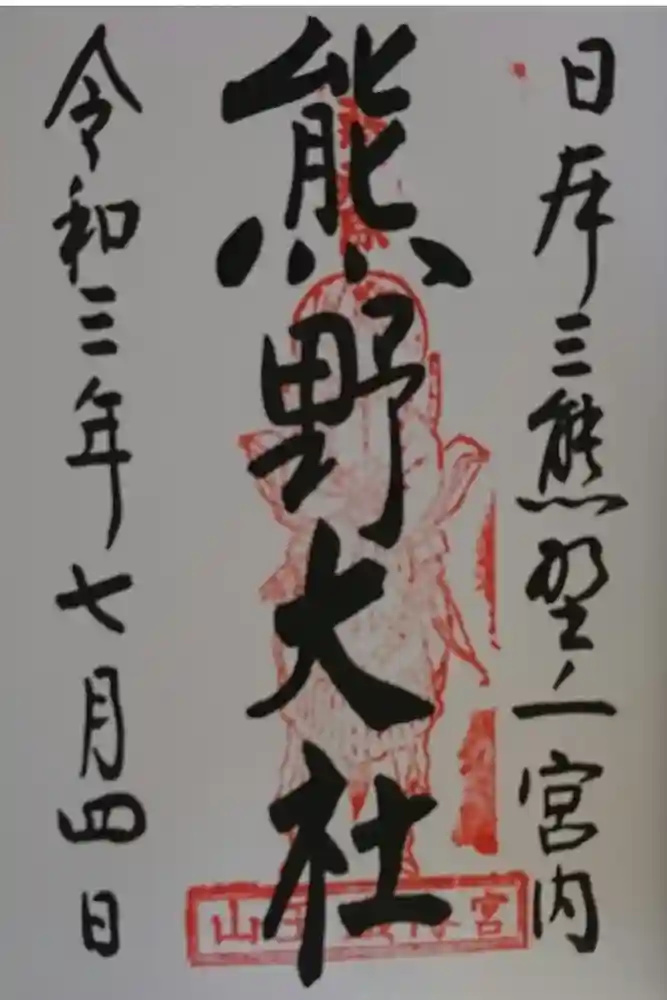 日本三熊野一宮内
熊野大社
令和三年七月四日